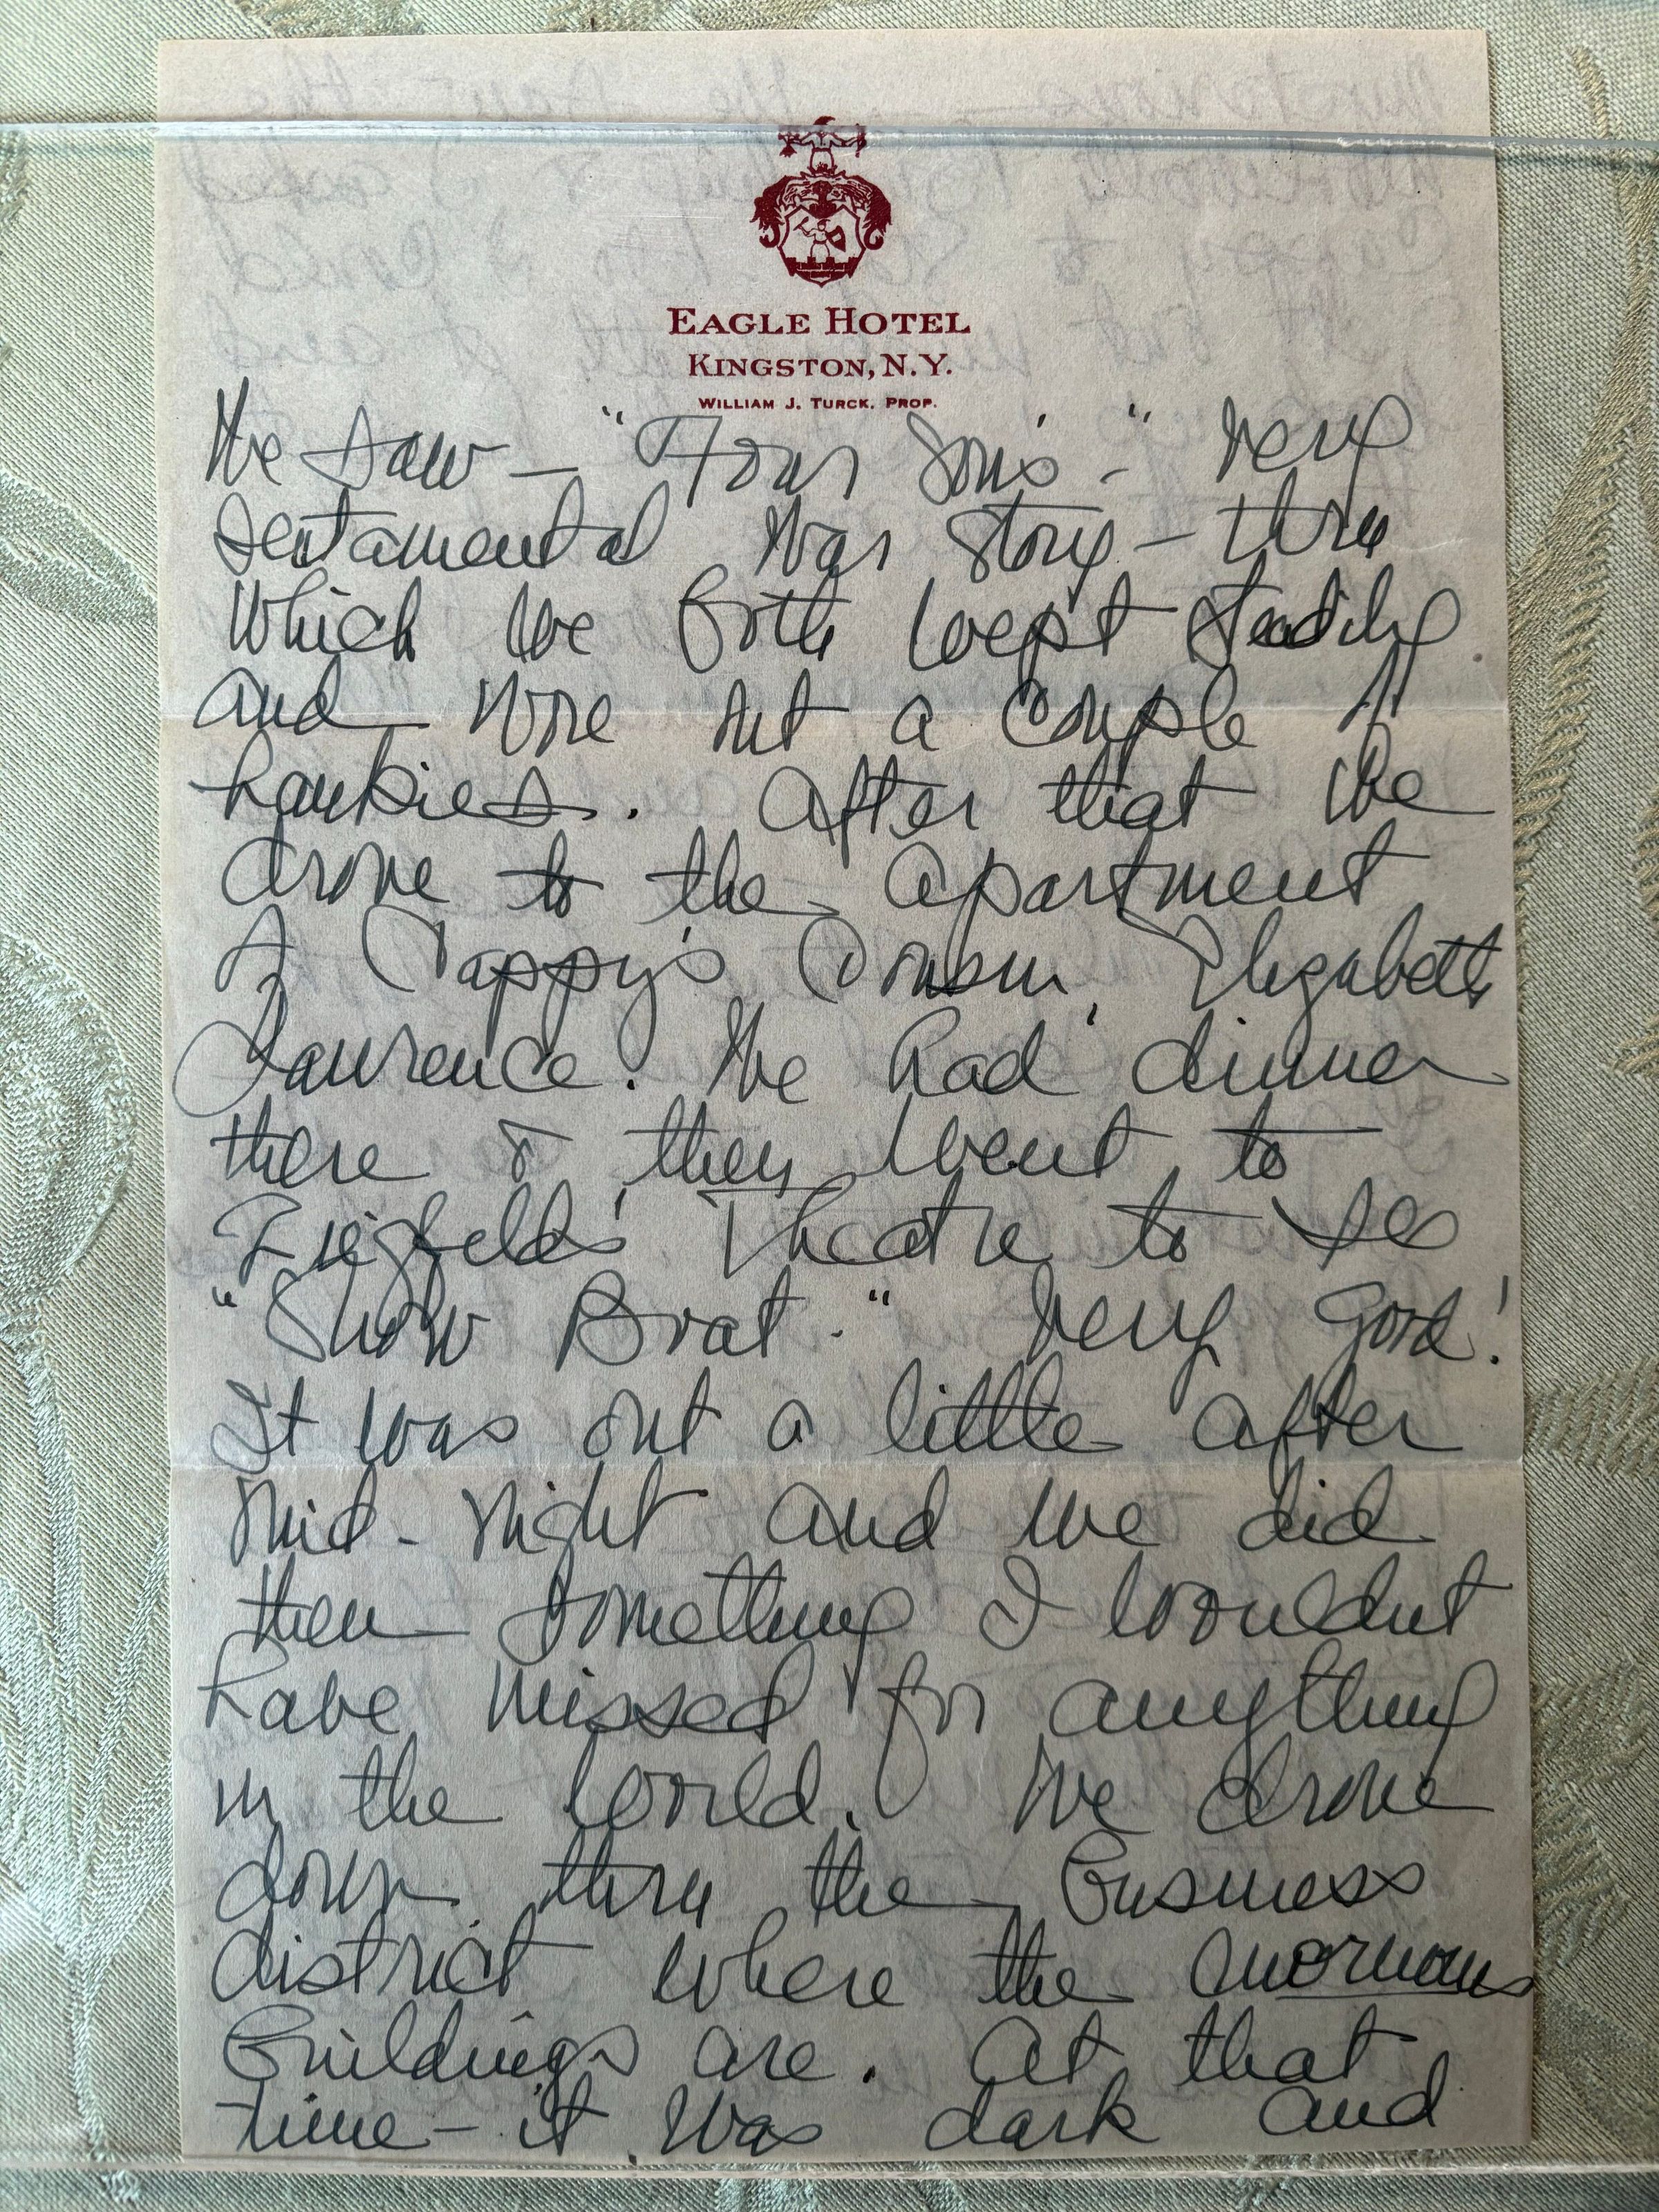 EAGLE HOTEL
KINGSTON, N.Y.
WILLIAM J. TURCK, PROP.
We saw — "Four Sons" - very
sentamental war story — thru
which we both wept steadily
and wore out a couple of
hankies. After that we
drove to the apartment
of Pappy's Cousin, Elizabeth
Lawrence. We had dinner
there & then went to
Ziegfelds' Theatre to see
"Show Boat." Very good!
It was out a little after
mid-night and we did
then something I wouldnt
have missed for anything
in the world. We drove
down thru the business
district where the enormous
buildings are. At that
time — it was dark and